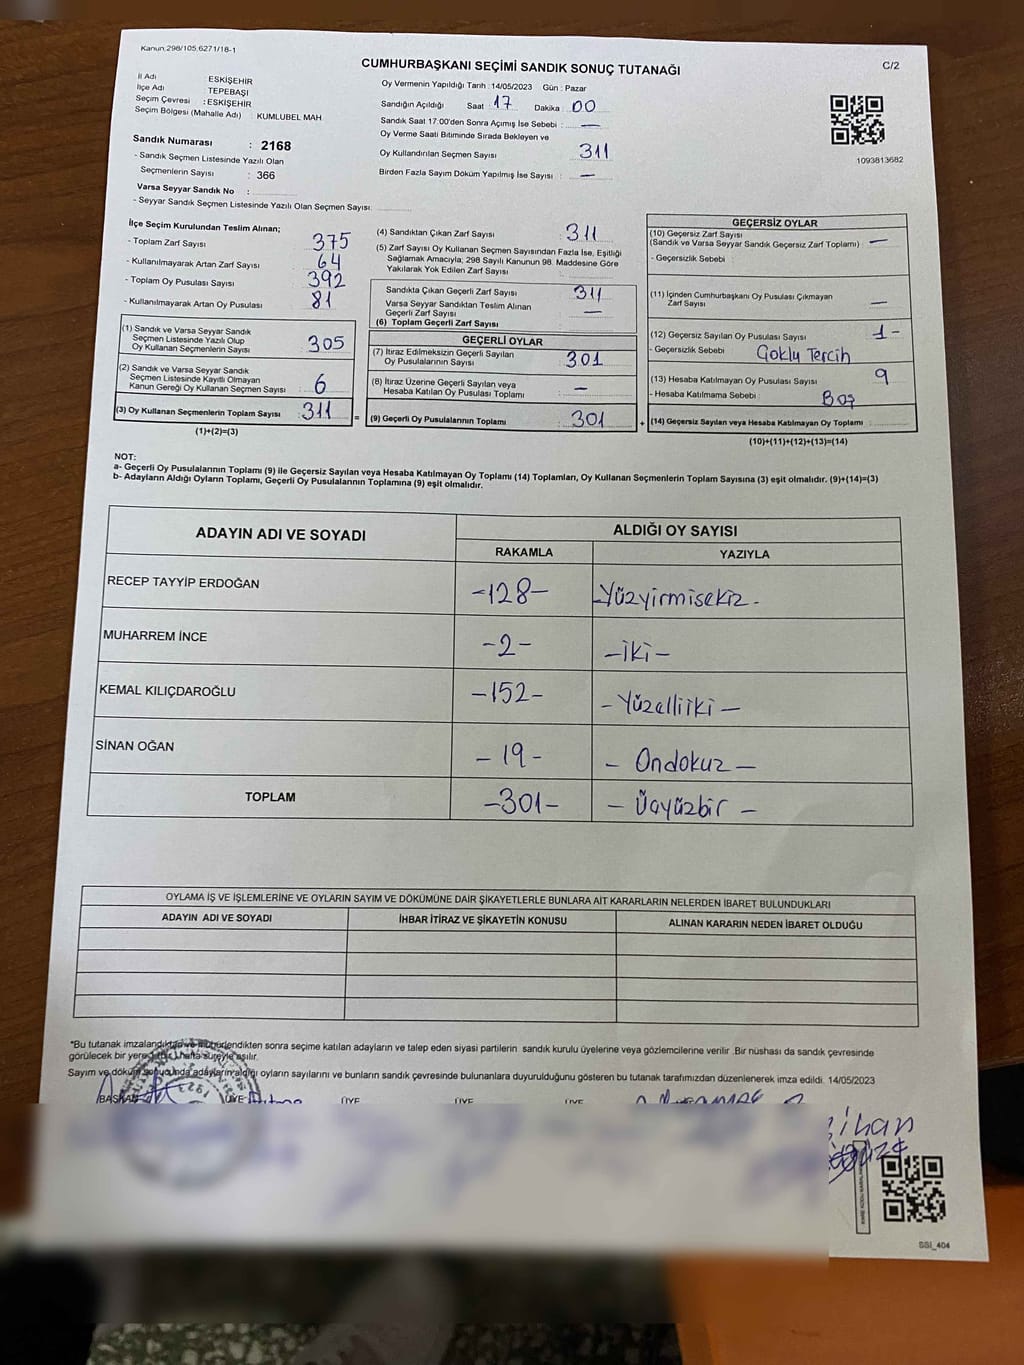 Kanun.298/105,6271/18-1
CUMHURBAŞKANI SEÇİMİ SANDIK SONUÇ TUTANAĞI
C/2
İl Adı : ESKİŞEHİR
İlçe Adı : TEPEBAŞI
Seçim Çevresi : ESKİŞEHİR
Seçim Bölgesi (Mahalle Adı) : KUMLUBEL MAH
Oy Vermenin Yapıldığı Tarih : 14/05/2023 Gün : Pazar
Sandığın Açıldığı Saat : 17 Dakika : 00
Sandık Saat 17:00'den Sonra Açımış İse Sebebi : —
Oy Verme Saati Bitiminde Sırada Bekleyen ve
Oy Kullandırılan Seçmen Sayısı : 311
Birden Fazla Sayım Döküm Yapılmış İse Sayısı : —
1093813682
Sandık Numarası : 2168
- Sandık Seçmen Listesinde Yazılı Olan
Seçmenlerin Sayısı : 366
Varsa Seyyar Sandık No :
- Seyyar Sandık Seçmen Listesinde Yazılı Olan Seçmen Sayısı:
İlçe Seçim Kurulundan Teslim Alınan;
- Toplam Zarf Sayısı : 375
- Kullanılmayarak Artan Zarf Sayısı : 64
- Toplam Oy Pusulası Sayısı : 392
- Kullanılmayarak Artan Oy Pusulası : 81
(1) Sandık ve Varsa Seyyar Sandık
Seçmen Listesinde Yazılı Olup
Oy Kullanan Seçmenlerin Sayısı : 305
(2) Sandık ve Varsa Seyyar Sandık
Seçmen Listesinde Kayıtlı Olmayan
Kanun Gereği Oy Kullanan Seçmen Sayısı : 6
(3) Oy Kullanan Seçmenlerin Toplam Sayısı : 311 =
(1)+(2)=(3)
(4) Sandıktan Çıkan Zarf Sayısı : 311
(5) Zarf Sayısı Oy Kullanan Seçmen Sayısından Fazla İse, Eşitliği
Sağlamak Amacıyla; 298 Sayılı Kanunun 98. Maddesine Göre
Yakılarak Yok Edilen Zarf Sayısı :
Sandıkta Çıkan Geçerli Zarf Sayısı : 311
Varsa Seyyar Sandıktan Teslim Alınan
Geçerli Zarf Sayısı : —
(6) Toplam Geçerli Zarf Sayısı :
GEÇERLİ OYLAR
(7) İtiraz Edilmeksizin Geçerli Sayılan
Oy Pusulalarının Sayısı : 301
(8) İtiraz Üzerine Geçerli Sayılan veya
Hesaba Katılan Oy Pusulası Toplamı : —
(9) Geçerli Oy Pusulalarının Toplamı : 301 +
GEÇERSİZ OYLAR
(10) Geçersiz Zarf Sayısı
(Sandık ve Varsa Seyyar Sandık Geçersiz Zarf Toplamı) : —
- Geçersizlik Sebebi :
(11) İçinden Cumhurbaşkanı Oy Pusulası Çıkmayan
Zarf Sayısı : —
(12) Geçersiz Sayılan Oy Pusulası Sayısı : 1 -
- Geçersizlik Sebebi : Çoklu Tercih
(13) Hesaba Katılmayan Oy Pusulası Sayısı : 9
- Hesaba Katılmama Sebebi : Boş
(14) Geçersiz Sayılan veya Hesaba Katılmayan Oy Toplamı :
(10)+(11)+(12)+(13)=(14)
NOT:
a- Geçerli Oy Pusulalarının Toplamı (9) ile Geçersiz Sayılan veya Hesaba Katılmayan Oy Toplamı (14) Toplamları, Oy Kullanan Seçmenlerin Toplam Sayısına (3) eşit olmalıdır. (9)+(14)=(3)
b- Adayların Aldığı Oyların Toplamı, Geçerli Oy Pusulalarının Toplamına (9) eşit olmalıdır.
ADAYIN ADI VE SOYADI ALDIĞI OY SAYISI
RAKAMLA YAZIYLA
RECEP TAYYİP ERDOĞAN -128- -Yüzyirmisekiz-
MUHARREM İNCE -2- -iki-
KEMAL KILIÇDAROĞLU -152- -Yüzelliiki-
SİNAN OĞAN -19- -Ondokuz-
TOPLAM -301- -Üçyüzbir-
OYLAMA İŞ VE İŞLEMLERİNE VE OYLARIN SAYIM VE DÖKÜMÜNE DAİR ŞİKAYETLERLE BUNLARA AİT KARARLARIN NELERDEN İBARET BULUNDUKLARI
ADAYIN ADI VE SOYADI İHBAR İTİRAZ VE ŞİKAYETİN KONUSU ALINAN KARARIN NEDEN İBARET OLDUĞU
*Bu tutanak imzalandıktan ve mühürlendikten sonra seçime katılan adayların ve talep eden siyasi partilerin sandık kurulu üyelerine veya gözlemcilerine verilir .Bir nüshası da sandık çevresinde
görülecek bir yere bir hafta süreyle asılır.
Sayım ve döküm sonucunda adayların aldığı oyların sayılarını ve bunların sandık çevresinde bulunanlara duyurulduğunu gösteren bu tutanak tarafımızdan düzenlenerek imza edildi. 14/05/2023
BAŞKAN ÜYE ÜYE ÜYE ÜYE
SSI_404